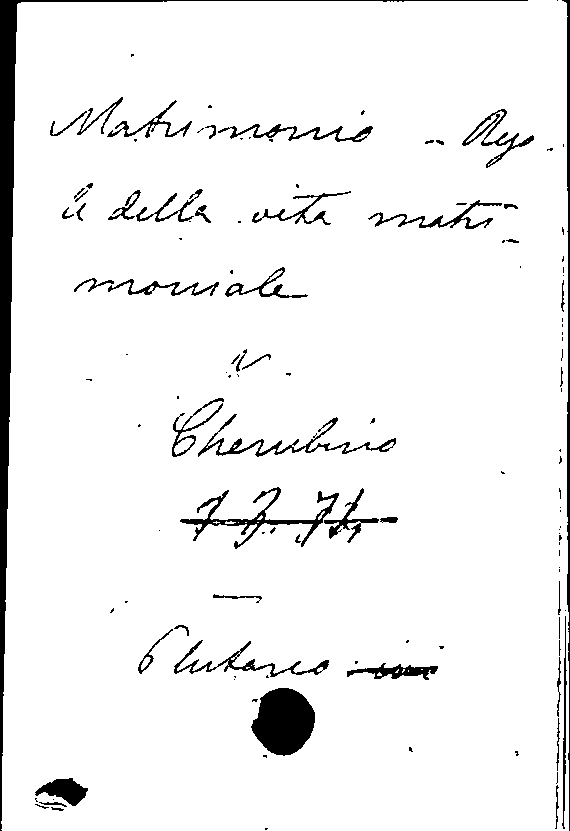 Matrimonio - Rego-
le della vita matri-
moniale
V.
Cherubino
Plutarco